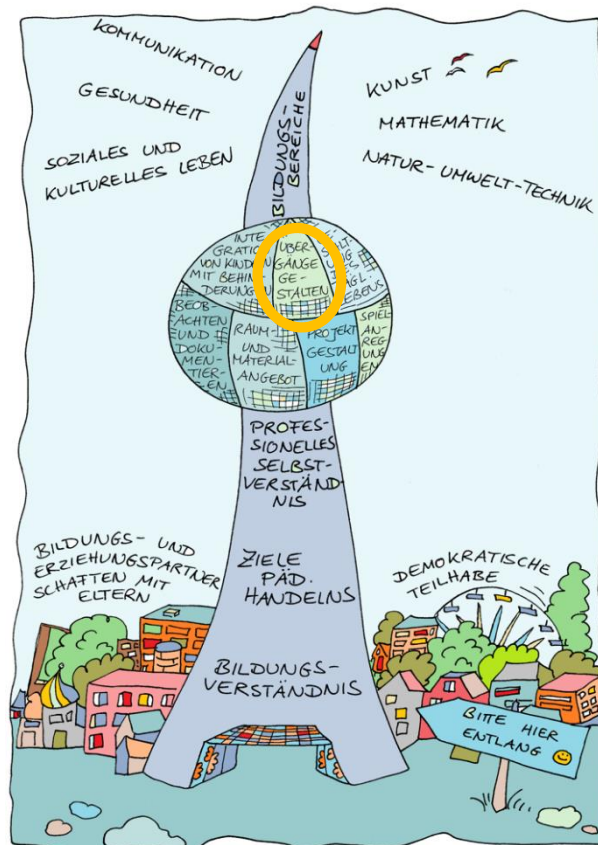 KOMMUNIKATION
GESUNDHEIT
SOZIALES UND
KULTURELLES LEBEN
KUNST
MATHEMATIK
NATUR-UMWELT-TECHNIK
BILDUNGS-
BEREICHE
INTE
GRATION
VON KINDERN
MIT BEHIN-
DERUNGEN
ÜBER-
GÄNGE
GE-
STALTEN
LEBENS
BEOB-
ACHTEN
UND
DOKU-
MEN-
TIER-
EN
RAUM-
UND
MATERIAL-
ANGEBOT
PROJEKT
GESTALT
UNG
SPIEL-
AN-
REG-
UNGEN
PROFES-
SIONELLES
SELBST-
VERSTÄND-
NIS
ZIELE
PÄD.
HANDELNS
BILDUNGS-
VERSTÄNDNIS
BILDUNGS- UND
ERZIEHUNGSPARTNER
SCHAFTEN MIT
ELTERN
DEMOKRATISCHE
TEILHABE
BITTE HIER
ENTLANG